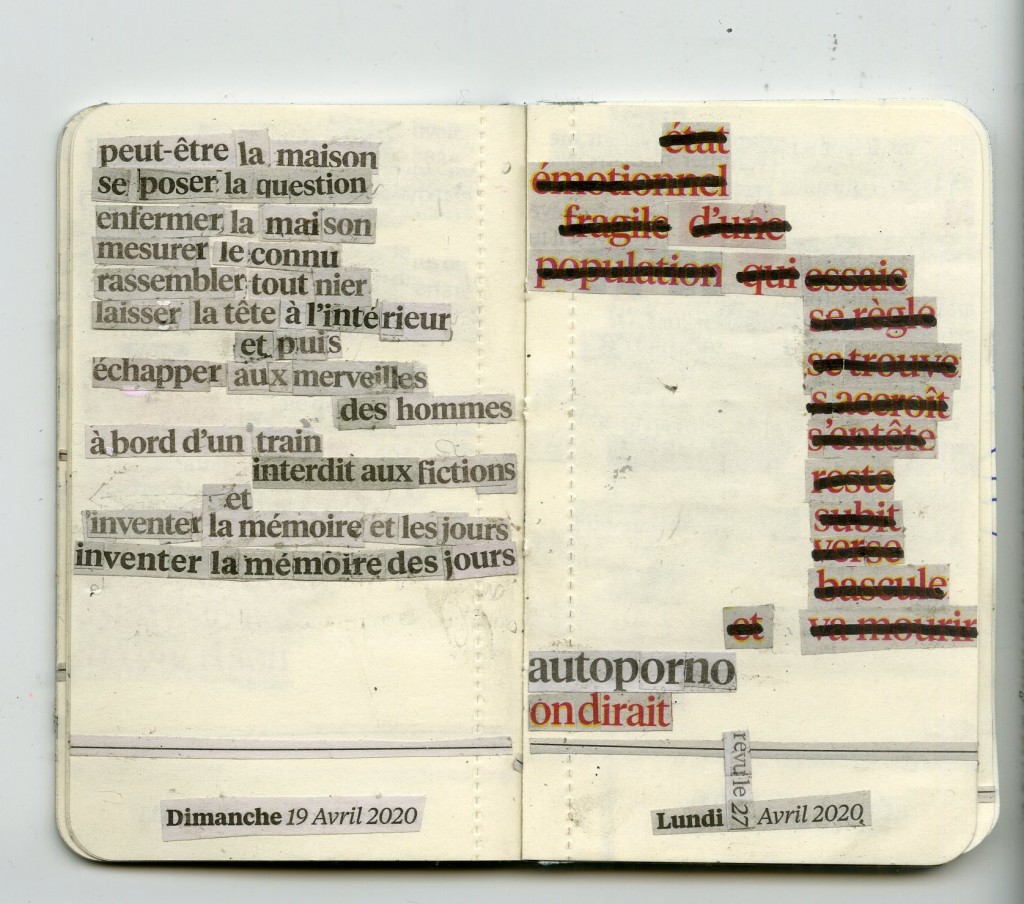 peut-être la maison
se poser la question
enfermer la maison
mesurer le connu
rassembler tout nier
laisser la tête à l'intérieur
et puis
échapper aux merveilles
des hommes
à bord d'un train
interdit aux fictions
et
inventer la mémoire et les jours
inventer la mémoire des jours
Dimanche 19 Avril 2020
état
émotionnel
fragile d'une
population qui essaie
se règle
se trouve
s'accroît
s'entête
reste
subit
verse
bascule
et va mourir
autoporno
on dirait
Lundi 27 Avril 2020